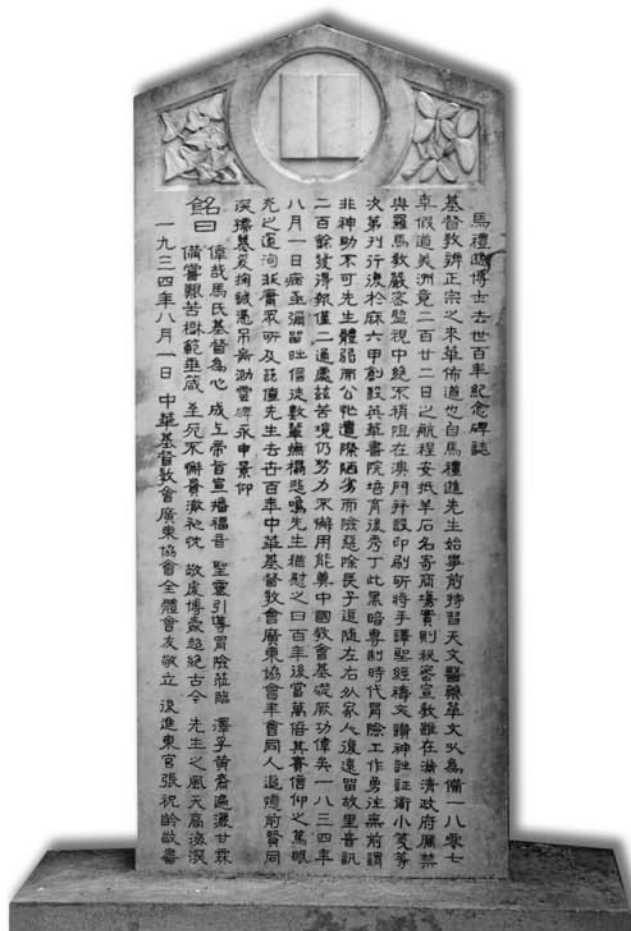 馬禮遜博士去世百年紀念碑誌
基督教辨正宗之來華佈道也自馬禮遜先生始事前特習天文醫藥華文以為備一八零七
卓假道美洲竟二百廿二日之航程安抵羊石名寄商場實則秘密宣教雖在滿清政府厲禁
與羅馬教嚴密監視中絕不稍阻在澳門並設印刷所將手譯聖經禱文讚神詩証衛小箋等
次第刊行復於麻六甲創設英華書院培育後秀丁此黑暗專制時代冒險工作勇往無前謂
非神助不可先生體弱而公忙遭際陋劣而險惡除長子追隨左右外家人復遠留故里音訊
二百餘發得報僅二通處茲苦境仍努力不懈用能奠中國教會基礎厥功偉矣一八三四年
八月一日病亟彌留時信徒數輩撫榻悲鳴先生猶慰之曰百年後當萬倍其賽信仰之篤眼
光之遠洵非庸眾所及茲值先生去世百年中華基督教會廣東協會年會同人追隨前賢同
深孺慕爰掬誠憑弔齊泐雲碑永申景仰
銘曰
偉哉馬氏基督為心 成上帝旨宣播福音 聖靈引導冒險蒞臨 澤孚黃裔遍灑甘霖
備嘗艱苦樹範垂箴 至死不懈貫澈祂忱 敬虔博愛超絕古今 先生之風天高海深
一九三四年八月一日 中華基督教會廣東協會全體會友敬立 後進東官張祝齡敬書